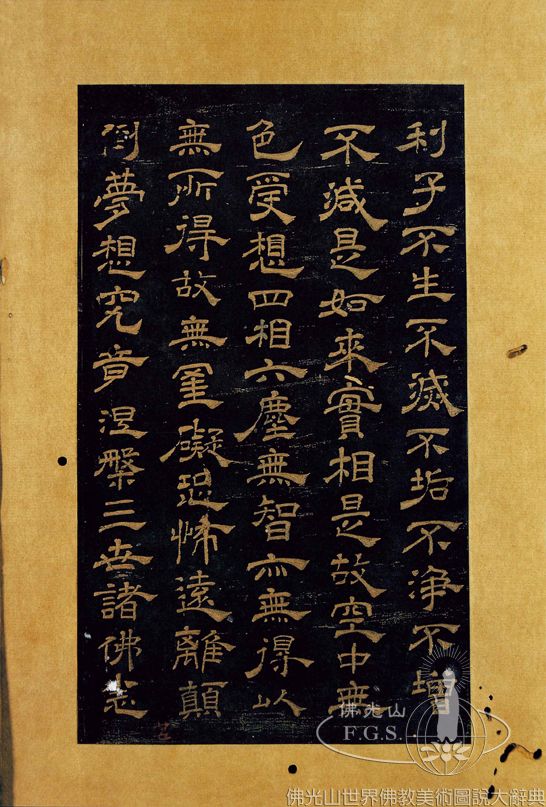 利子不生不滅不垢不淨不增
不減是如來實相是故空中無
色受想四相六塵無智亦無得以
無所得故無罣礙恐怖遠離顛
倒夢想究竟涅槃三世諸佛
佛光山
F.G.S.
佛光山世界佛教美術圖說大辭典